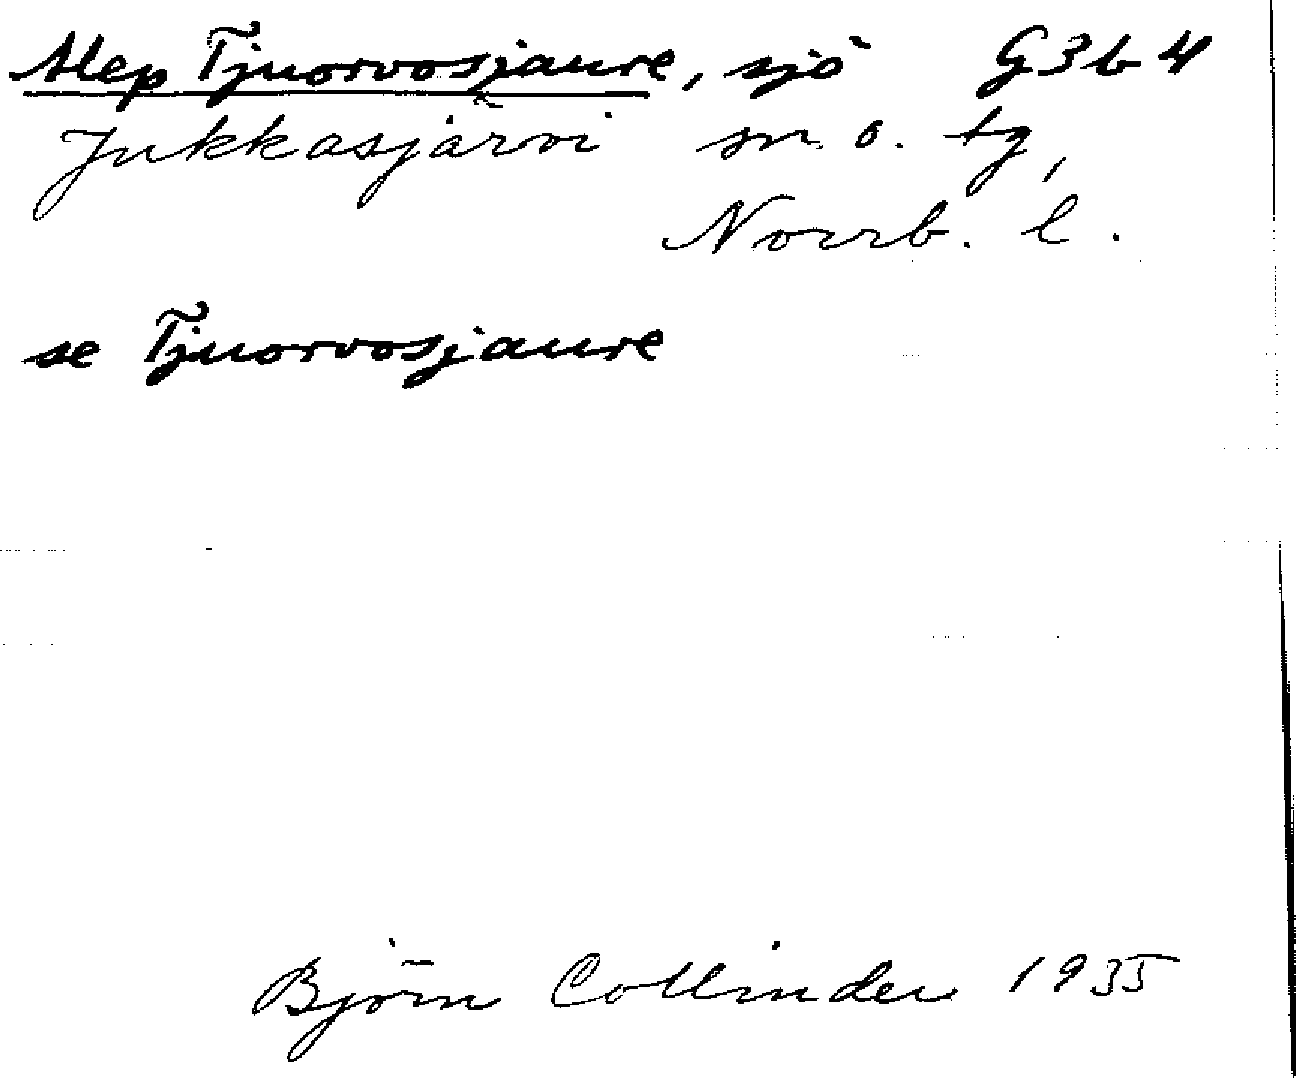 Alep Tjuorvosjaure, sjö G3b4
Jukkasjärvi sn o. tg,
Norrb. l.
se Tjuorvosjaure
Björn Collinder 1935